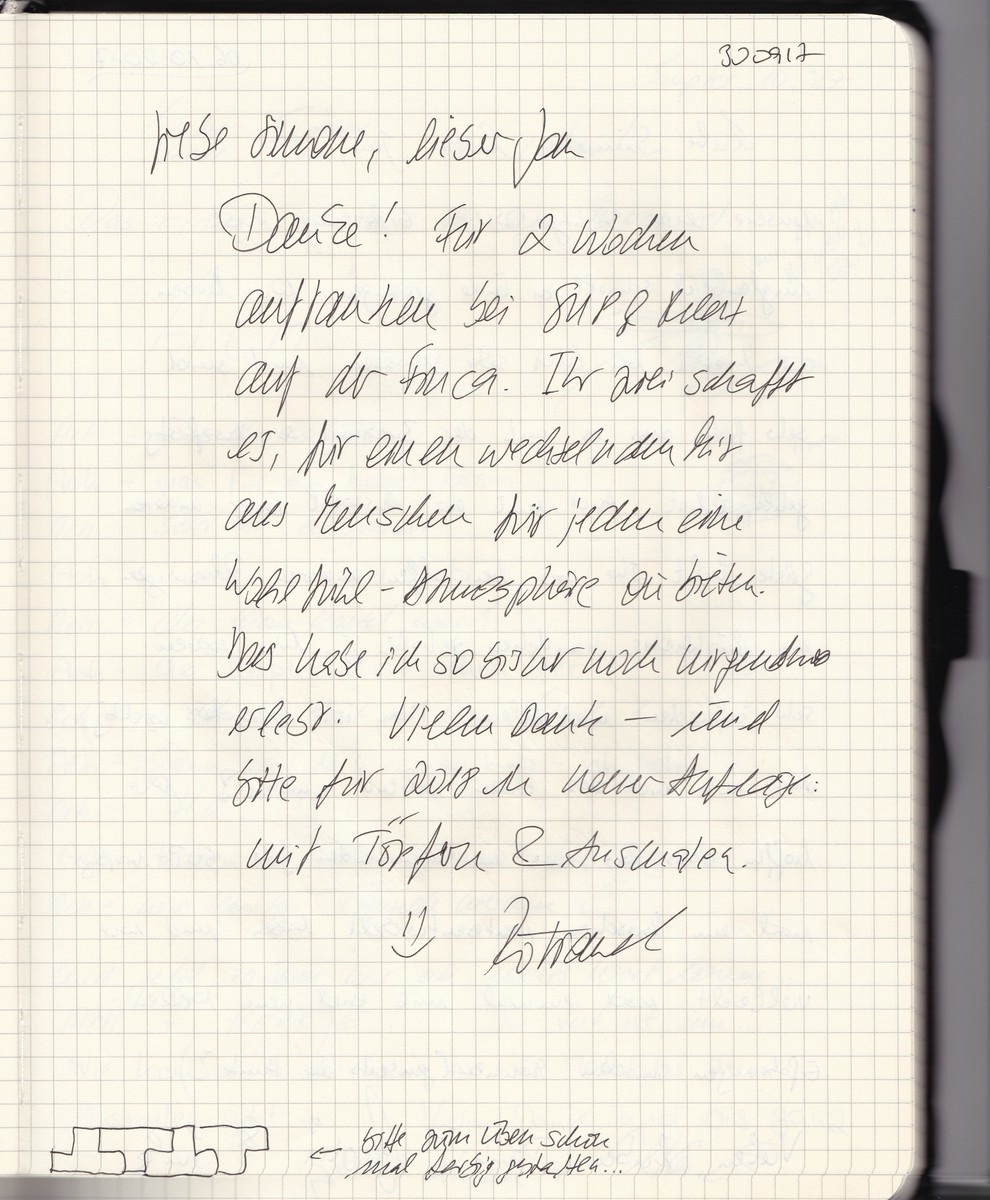 300917
Liebe Simone, lieber Jan
Danke! Für 2 Wochen
auftanken bei SUP & Kunst
auf der Finca. Ihr zwei schafft
es, für einen wechselnden Mix
aus Menschen für jeden eine
Wohlfühl-Atmosphäre zu bieten.
Das habe ich so bisher noch nirgendwo
erlebt. Vielen Dank – und
bitte für 2018 'ne neue Auflage:
mit Töpfern & Ausmalen.
Rotraud
← bitte zum Üben schon
mal farbig gestalten...